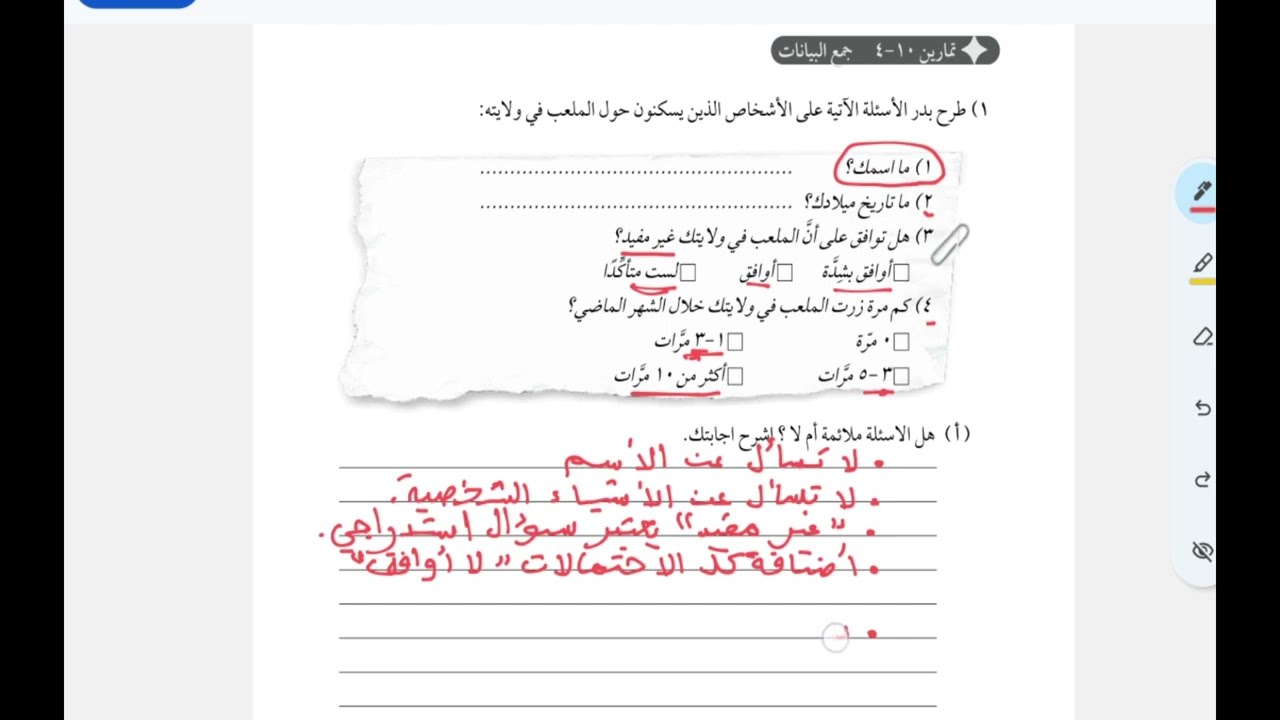 تمارين ١٠-٤ جمع البيانات
١) طرح بدر الأسئلة الآتية على الأشخاص الذين يسكنون حول الملعب في ولايته:
١) ما اسمك؟ ....................................................
٢) ما تاريخ ميلادك؟ ....................................................
٣) هل توافق على أنَّ الملعب في ولايتك غير مفيد؟
أوافق بشِدَّة أوافق لست متأكِّدًا
٤) كم مرة زرت الملعب في ولايتك خلال الشهر الماضي؟
٠ مرّة ١-٣ مرَّات
٣-٥ مرَّات أكثر من ١٠ مرَّات
(أ) هل الاسئلة ملائمة أم لا ؟ إشرح اجابتك.
• لا تسأل عن الأسم
• لا تسأل عن الأشياء الشخصية.
• "غير مفيد" يعتبر سؤال استدراجي.
• اضافة كل الاحتمالات "لا أوافق"
•